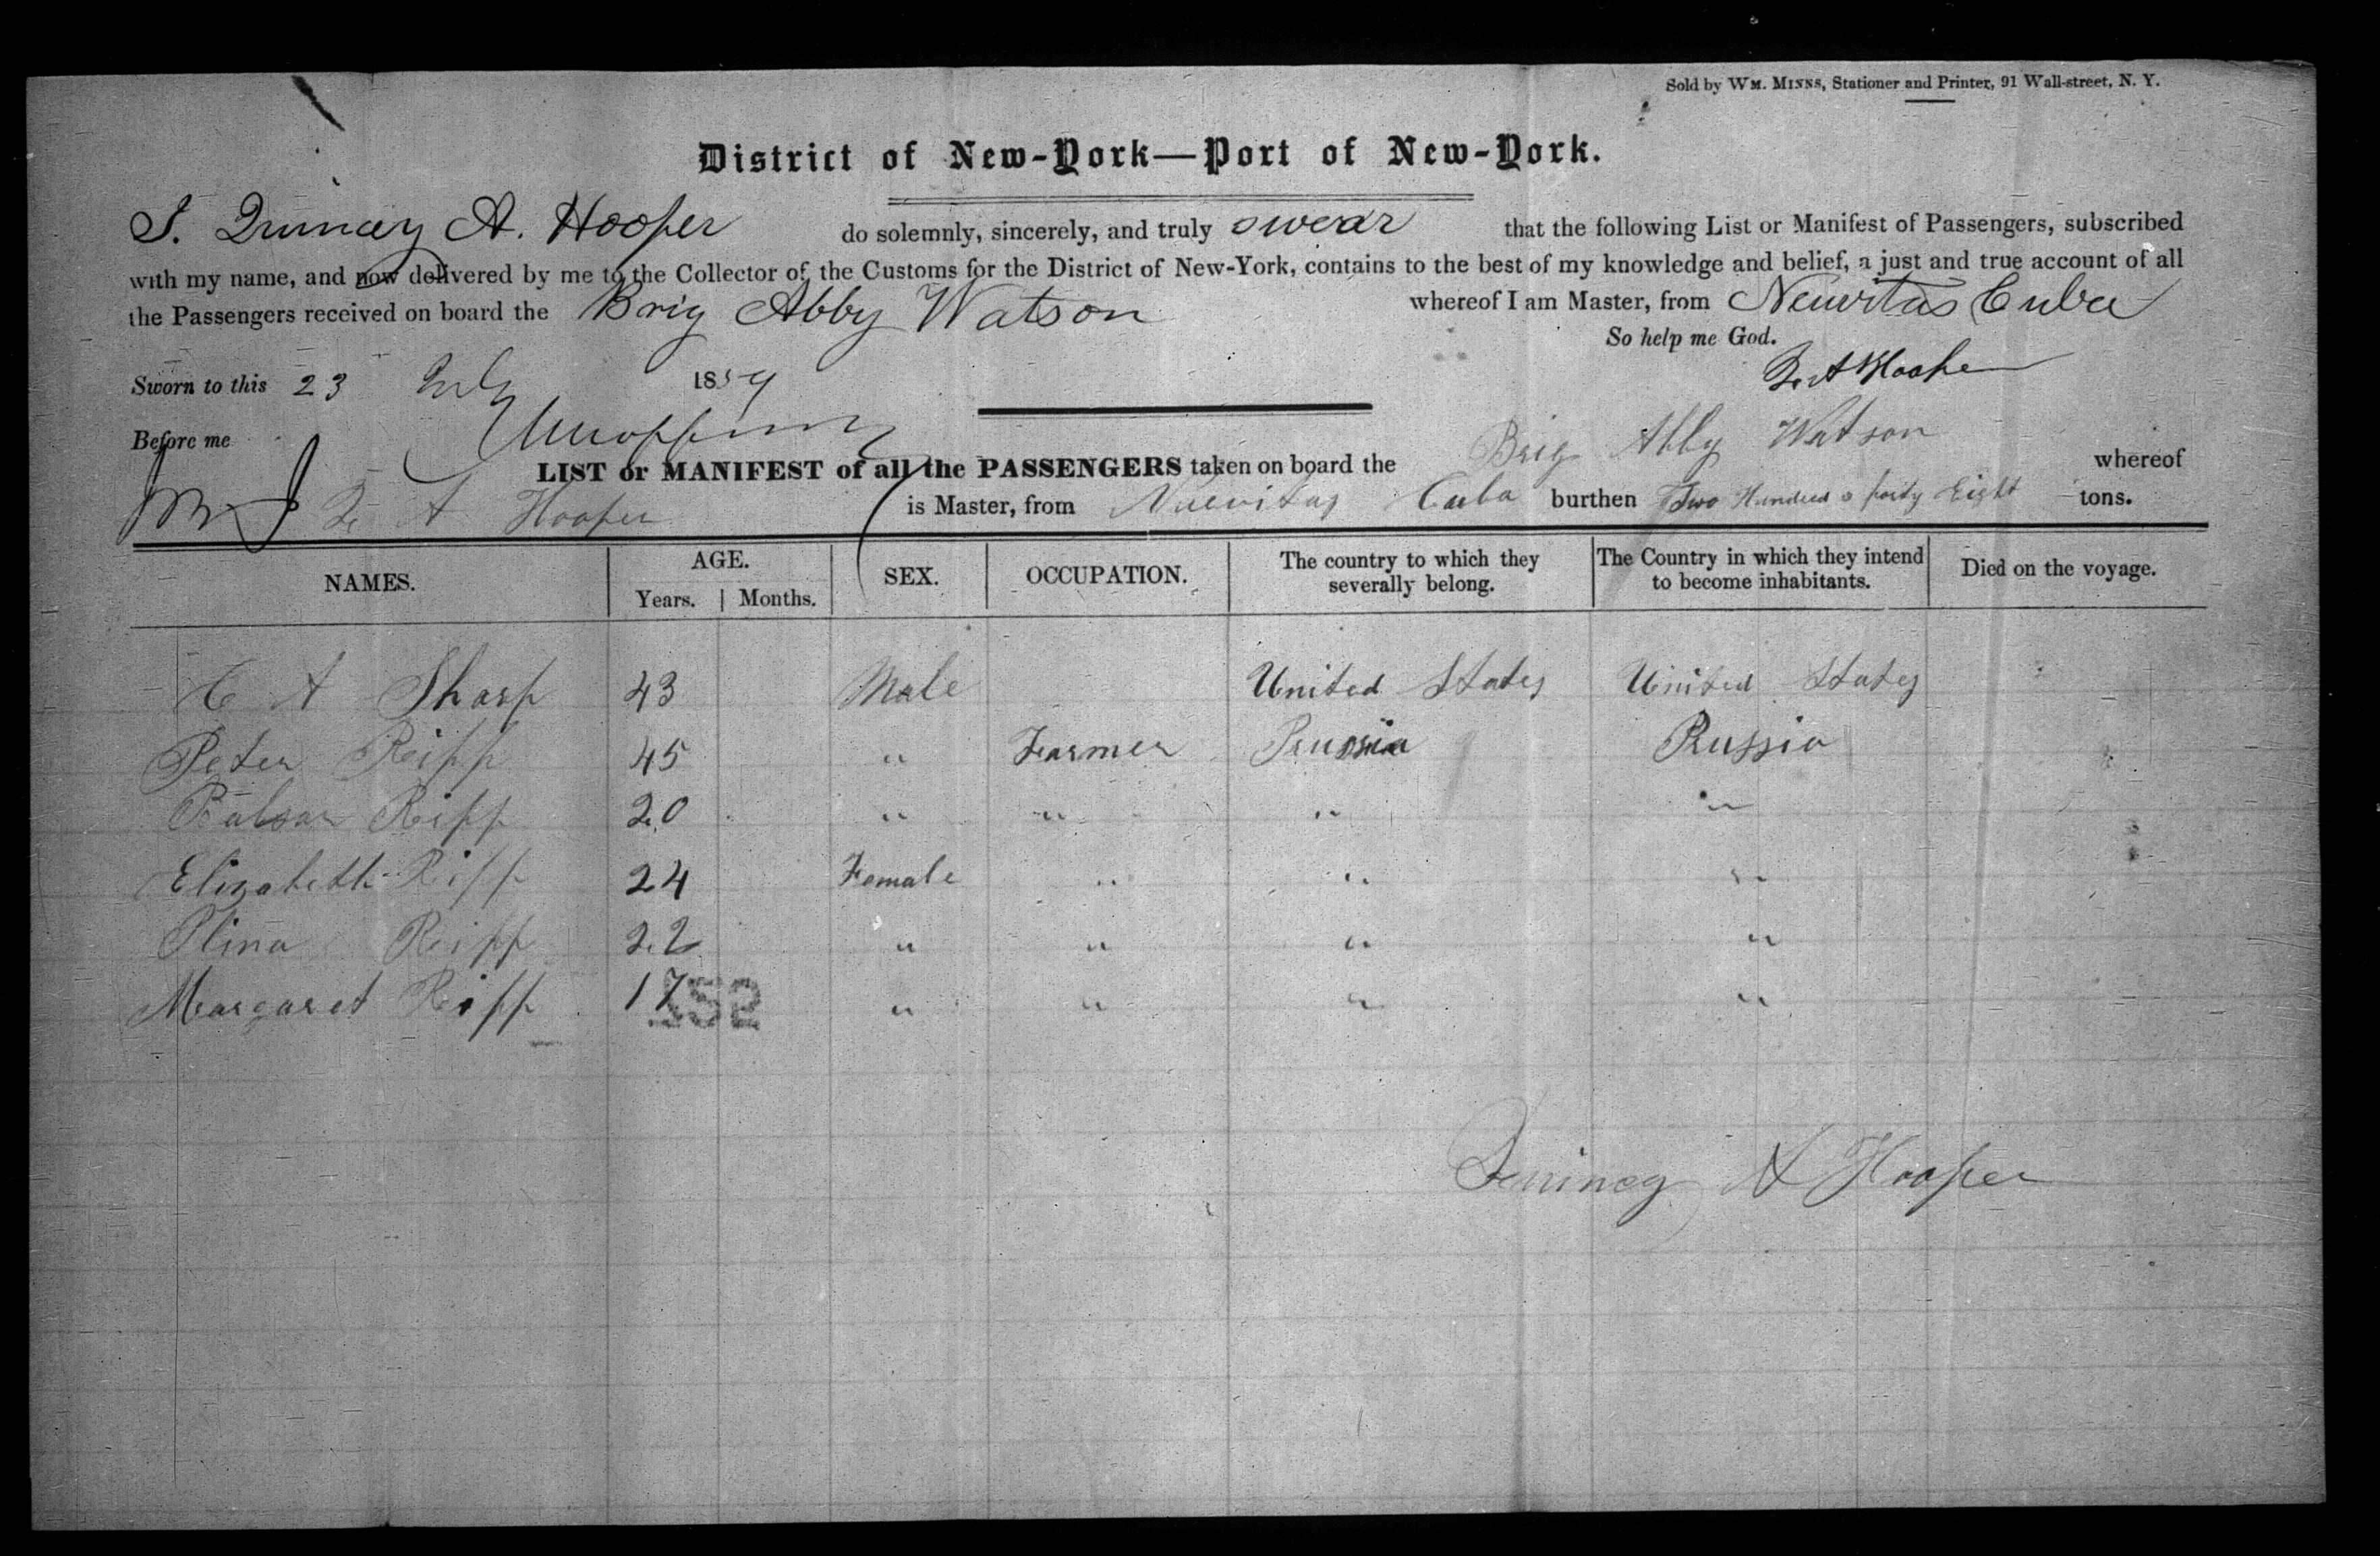 Sold by WM. MINNS, Stationer and Printer, 91 Wall-street, N. Y.
District of New-York—Port of New-York.
I. Quincey A. Hooper do solemnly, sincerely, and truly swear that the following List or Manifest of Passengers, subscribed
with my name, and now delivered by me to the Collector of the Customs for the District of New-York, contains to the best of my knowledge and belief, a just and true account of all
the Passengers received on board the Brig Abby Watson whereof I am Master, from Neuvitas Cuba
So help me God.
Sworn to this 23 July 1859 Q. A Hooper
Before me
LIST or MANIFEST of all the PASSENGERS taken on board the Brig Abby Watson whereof
Q A Hooper is Master, from Nuevitas Cuba burthen Two Hundred & forty Eight tons.
NAMES. AGE. SEX. OCCUPATION. The country to which they severally belong. The Country in which they intend to become inhabitants. Died on the voyage.
Years. Months.
C A Sharp 43 Male United States United States
Peter Ripp 45 " Farmer Prussia Russia
Balsar Ripp 20 " " " "
Elizabeth Ripp 24 Female " " "
Plina Ripp 22 " " " "
Margaret Ripp 17 " " " "
252
Quincy A Hooper